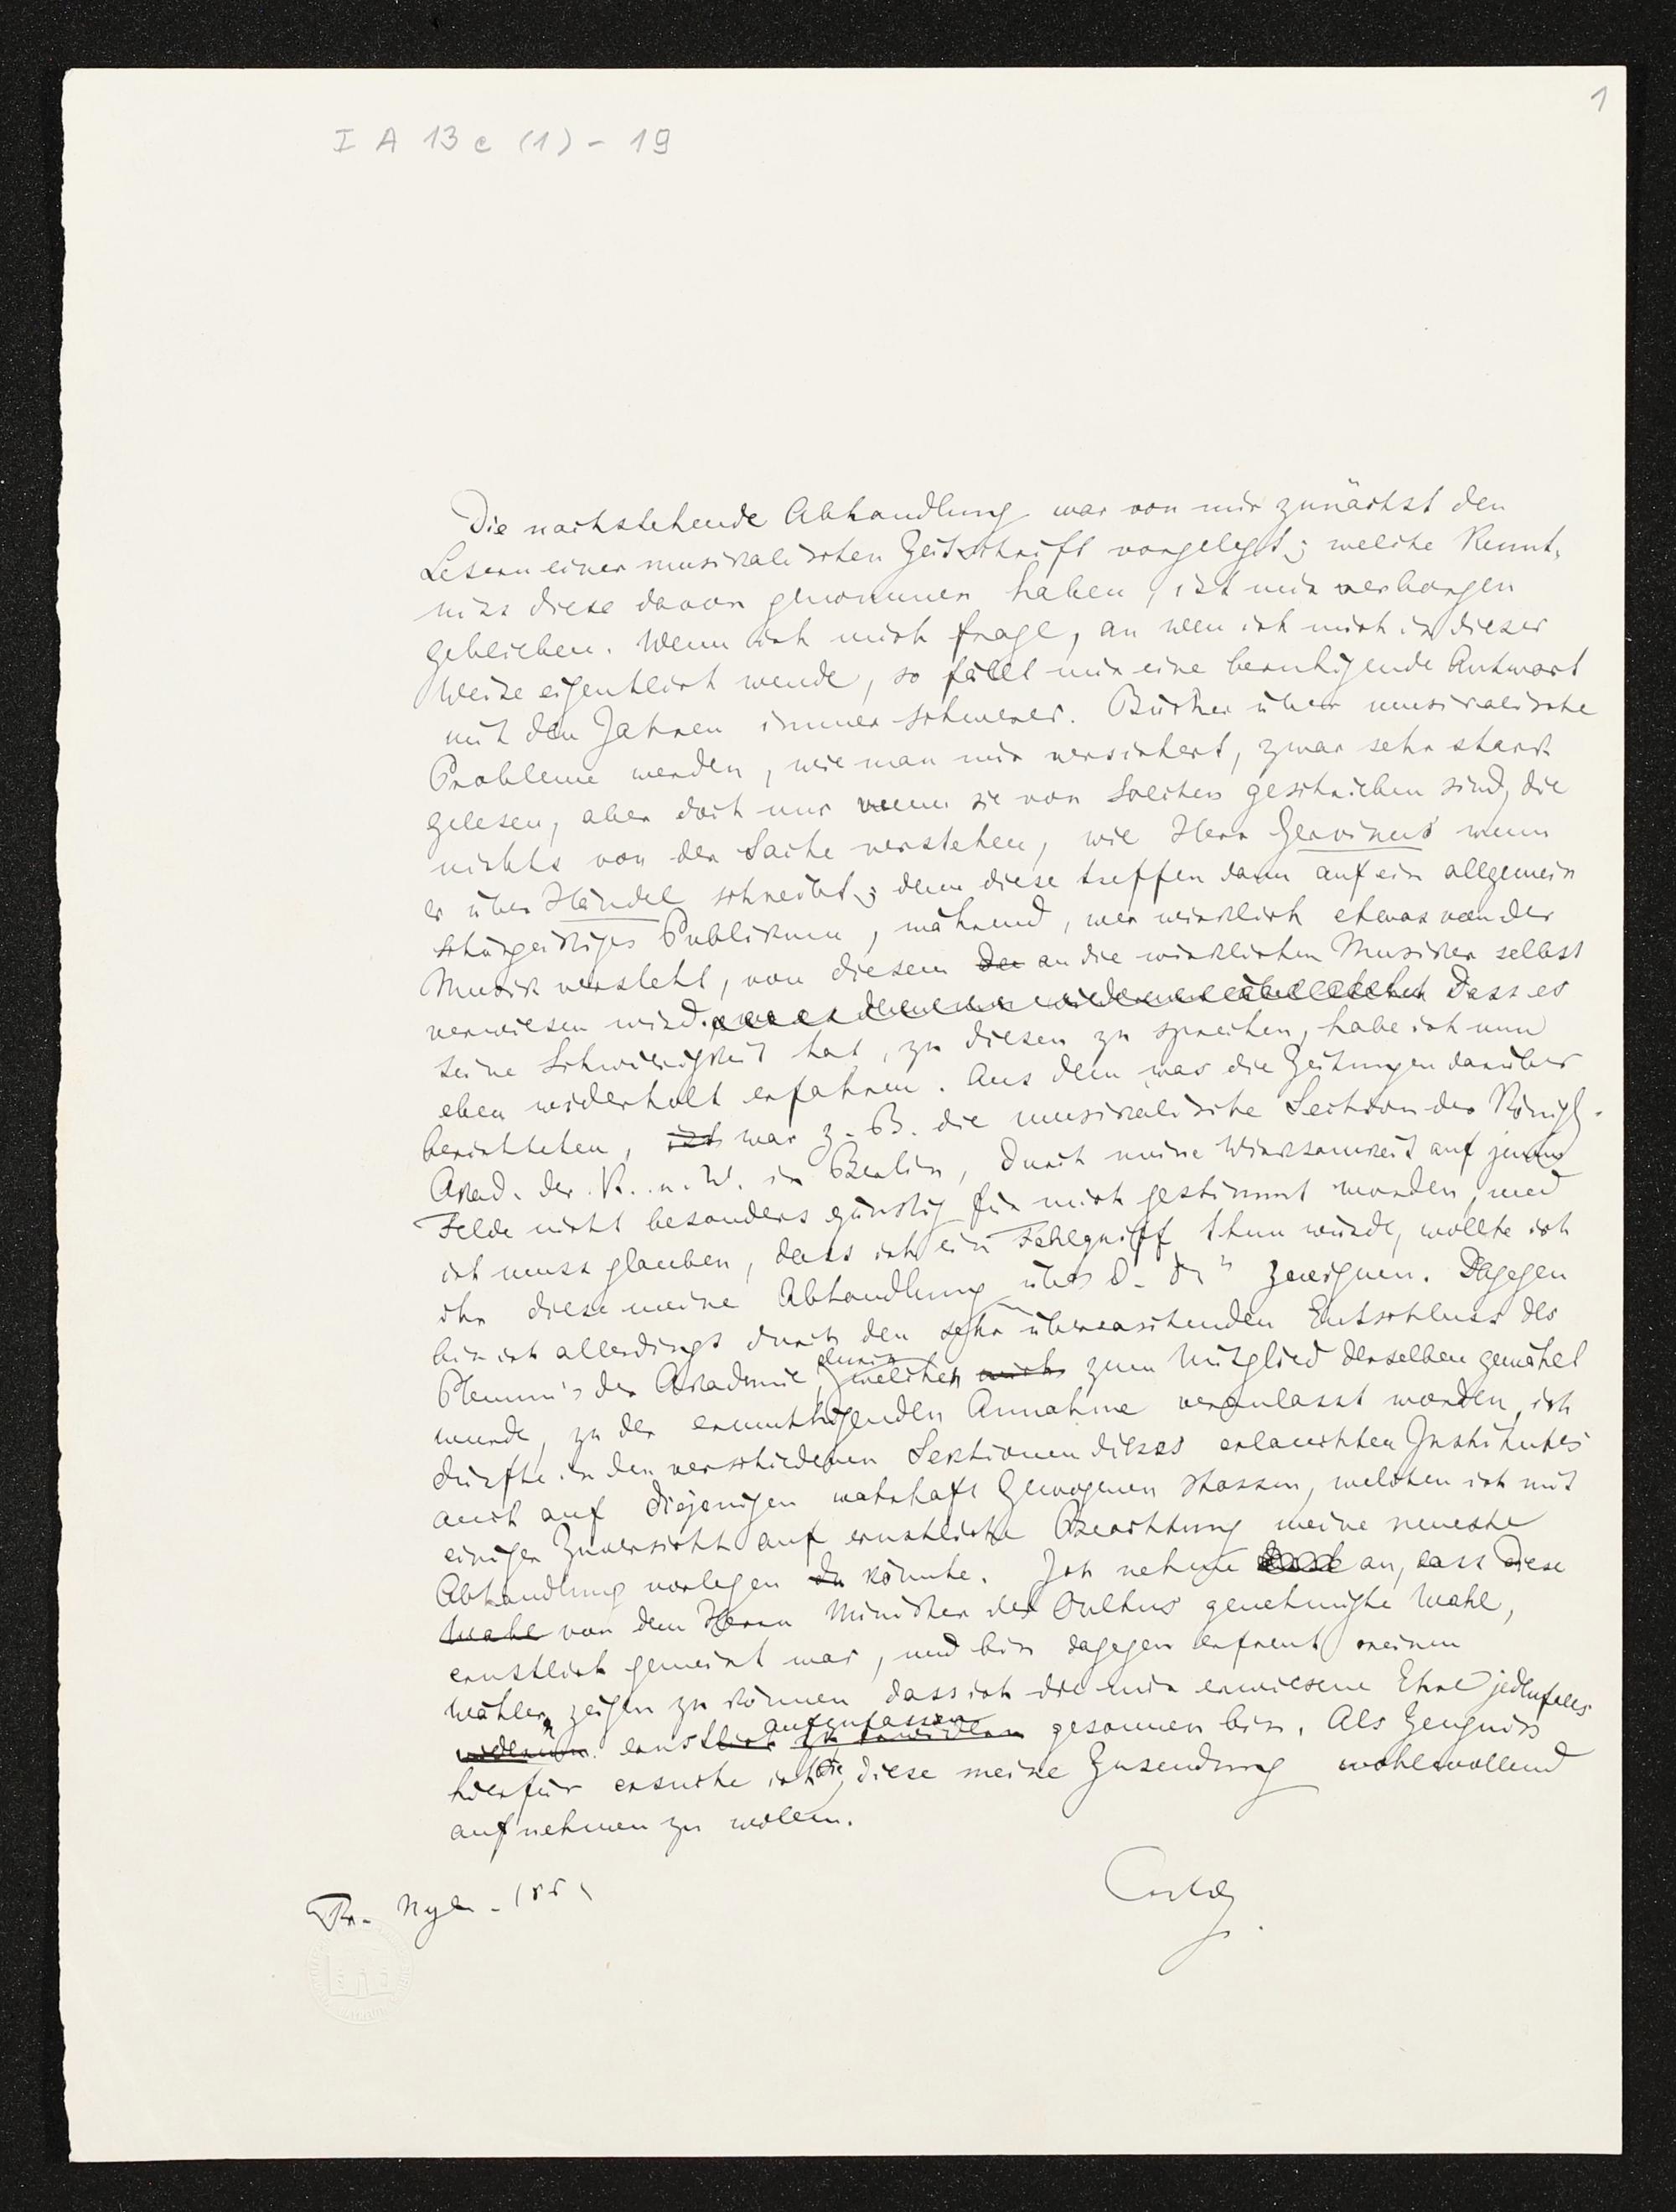 1
I A 13 c (1) - 19
Die nachstehende Abhandlung war von mir zunächst den
Lesern einer musikalischen Zeitschrift vorgelegt; welche Kennt-
niss diese davon genommen haben, ist mir verborgen
geblieben. Wenn ich mich frage, an wen ich mich in dieser
Weise eigentlich wende, so fällt mir eine beruhigende Antwort
mit den Jahren immer schwerer. Bücher über musikalische
Probleme werden, wie man mir versichert, zwar sehr stark
gelesen, aber doch nur wenn sie von Solchen geschrieben sind, die
nichts von der Sache verstehen, wie Herr Gervinus wenn
er über Händel schreibt; denn diese treffen dann auf ein allgemein
Publikum, während, wer wirklich etwas von der
Musik versteht, von diesem an die wirklichen Musiker selbst
verwiesen wird. Dass es
seine Schwierigkeit hat, zu diesen zu sprechen, habe ich nun
eben widerholt erfahren. Aus dem was die Zeitungen darüber
berichteten, ist war z. B. die musikalische Section der Königl.
Akad. der K. u. W. in Berlin, durch meine Wirksamkeit auf jenem
Felde nicht besonders günstig für mich gestimmt worden, und
ich muss glauben, dass ich ein Fehlgriff thun würde, wollte ich
ihr diese meine Abhandlung über D. zueignen. Dagegen
bin ich allerdings durch den sehr überraschenden Entschluss des
Plenum's der Akademie, durch welchen mich zum Mitglied derselben gewählt
wurde, zu der ermuthigenden Annahme veranlasst worden, ich
dürfte in den verschiedenen Sektionen dieses erlauchten Institutes
auch auf diejenigen wahrhaft Gewogenen stossen, welchen ich mit
einiger Zuversicht auf ernstliche Beachtung meine neueste
Abhandlung vorlegen zu könnte. Ich nehme an, dass diese
Wahl von dem Herrn Minister des Cultus genehmigte Wahl,
ernstlich gemeint war, und bin dagegen erfreut meinen
Wählern zeigen zu können dass ich die mir erwiesene Ehre jedenfalls
ernstlich aufzufassen zu erwidern gesonnen bin. Als Zeugniss
hierfür ersuche ich Sie, diese meine Zusendung wohlwollend
aufnehmen zu wollen.